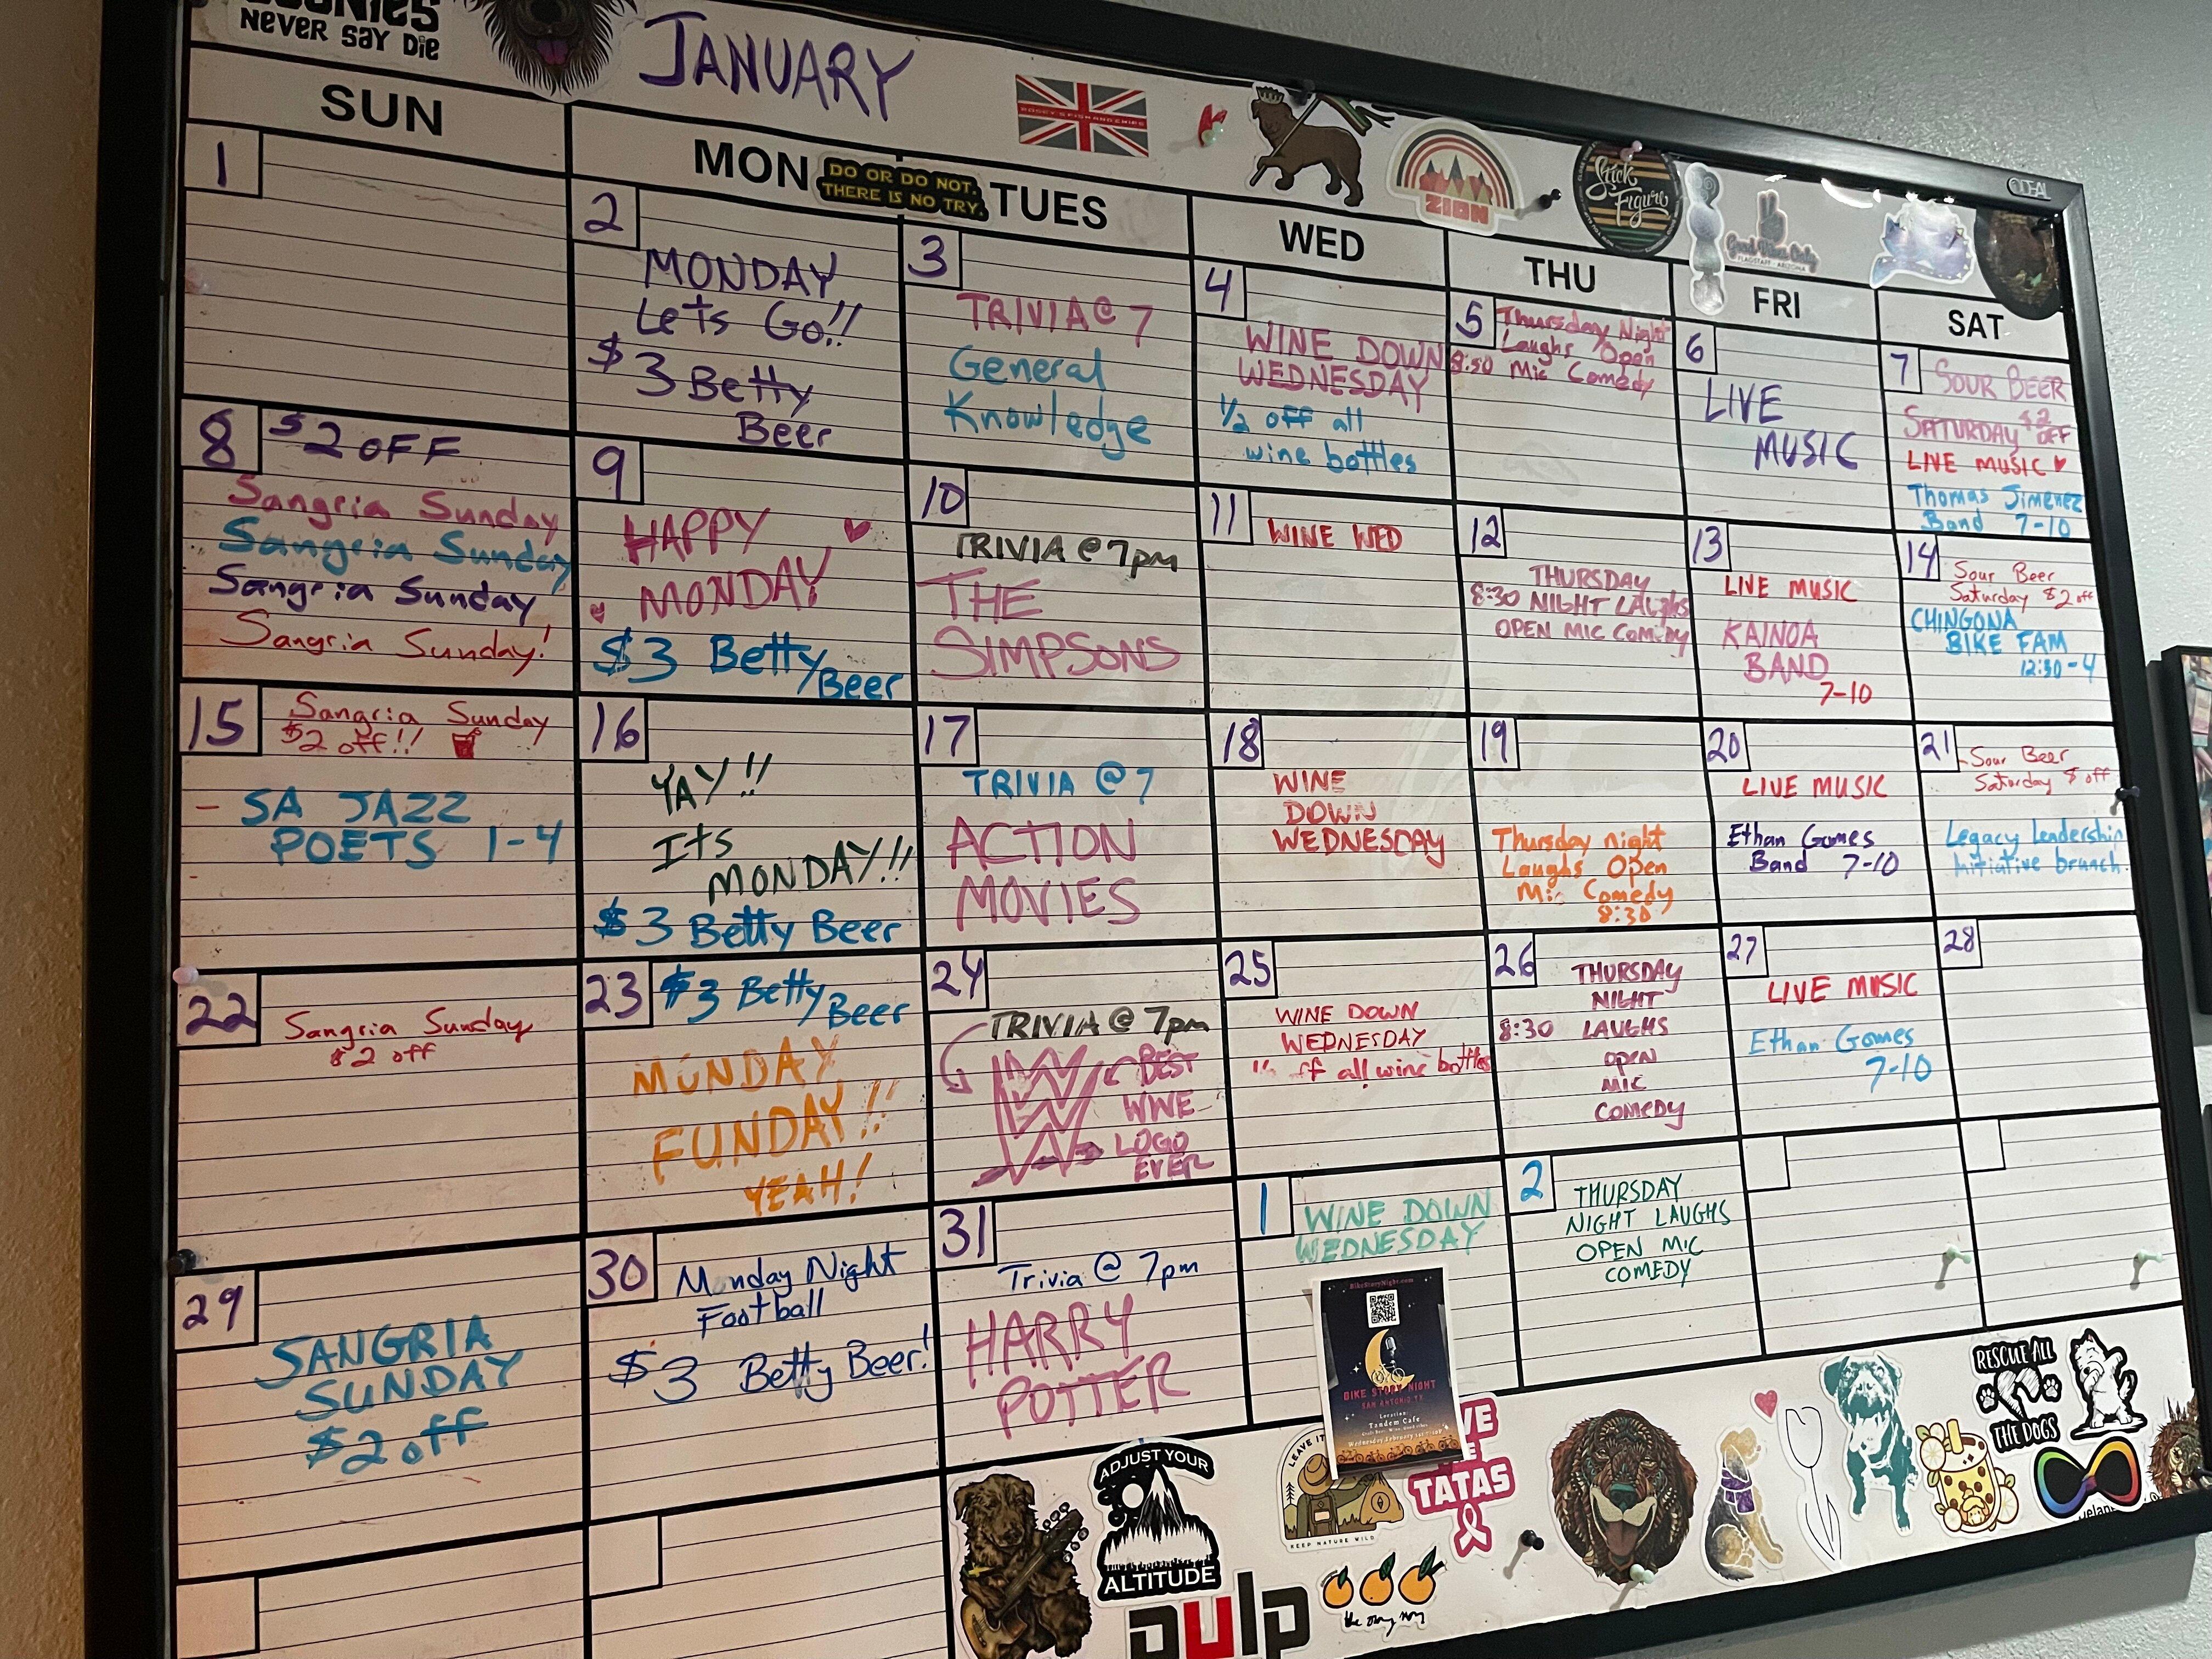 NEVER SAY DIE
JANUARY
ZION
Stick
Figure
Good Vibes Only
FLAGSTAFF · ARIZONA
SUN
MON
DO OR DO NOT.
THERE IS NO TRY.
TUES
WED
THU
FRI
SAT
1
2
MONDAY
Lets Go!!
$3 Betty
Beer
3
TRIVIA @ 7
General
Knowledge
4
WINE DOWN
WEDNESDAY
1/2 off all
wine bottles
5
Thursday Night
Laughs Open
Mic Comedy
6
LIVE
MUSIC
7
SOUR BEER
SATURDAY $2
OFF
LIVE MUSIC ♥
Thomas Jimenez
Band 7-10
8
$2 OFF
Sangria Sunday
Sangria Sunday
Sangria Sunday
Sangria Sunday!
9
HAPPY
MONDAY!
$3 Betty Beer
10
TRIVIA @ 7pm
THE
SIMPSONS
11
WINE WED
12
THURSDAY
8:30 NIGHT LAUGHS
OPEN MIC COMEDY
13
LIVE MUSIC
KAINOA
BAND
7-10
14
Sour Beer
Saturday $2 off
CHINGONA
BIKE FAM
12:30-4
15
Sangria Sunday
$2 off!!
- SA JAZZ
POETS 1-4
16
YAY!!
Its
MONDAY!!
$3 Betty Beer
17
TRIVIA @ 7
ACTION
MOVIES
18
WINE
DOWN
WEDNESDAY
19
Thursday night
Laughs Open
Mic Comedy
8:30
20
LIVE MUSIC
Ethan Gomes
Band 7-10
21
- Sour Beer
Saturday $ off
Legacy Leadership
initiative brunch
22
Sangria Sunday
$2 off
23
$3 Betty Beer
MUNDAY
FUNDAY!!
YEAH!
24
TRIVIA @ 7pm
BEST
WWE
LOGO
EVER
25
WINE DOWN
WEDNESDAY
off all wine bottles
26
THURSDAY
NIGHT
8:30 LAUGHS
OPEN
MIC
COMEDY
27
LIVE MUSIC
Ethan Gomes
7-10
28
29
SANGRIA
SUNDAY
$2 off
30
Monday Night
Football
$3 Betty Beer!
31
Trivia @ 7pm
HARRY
POTTER
1
WINE DOWN
WEDNESDAY
2
THURSDAY
NIGHT LAUGHS
OPEN MIC
COMEDY
BikeStoryNight.com
BIKE STORY NIGHT
SAN ANTONIO TX
Location:
Tandem Cafe
ADJUST YOUR
ALTITUDE
LEAVE IT
KEEP NATURE WILD
TATAS
pulp
RESCUE ALL
THE DOGS